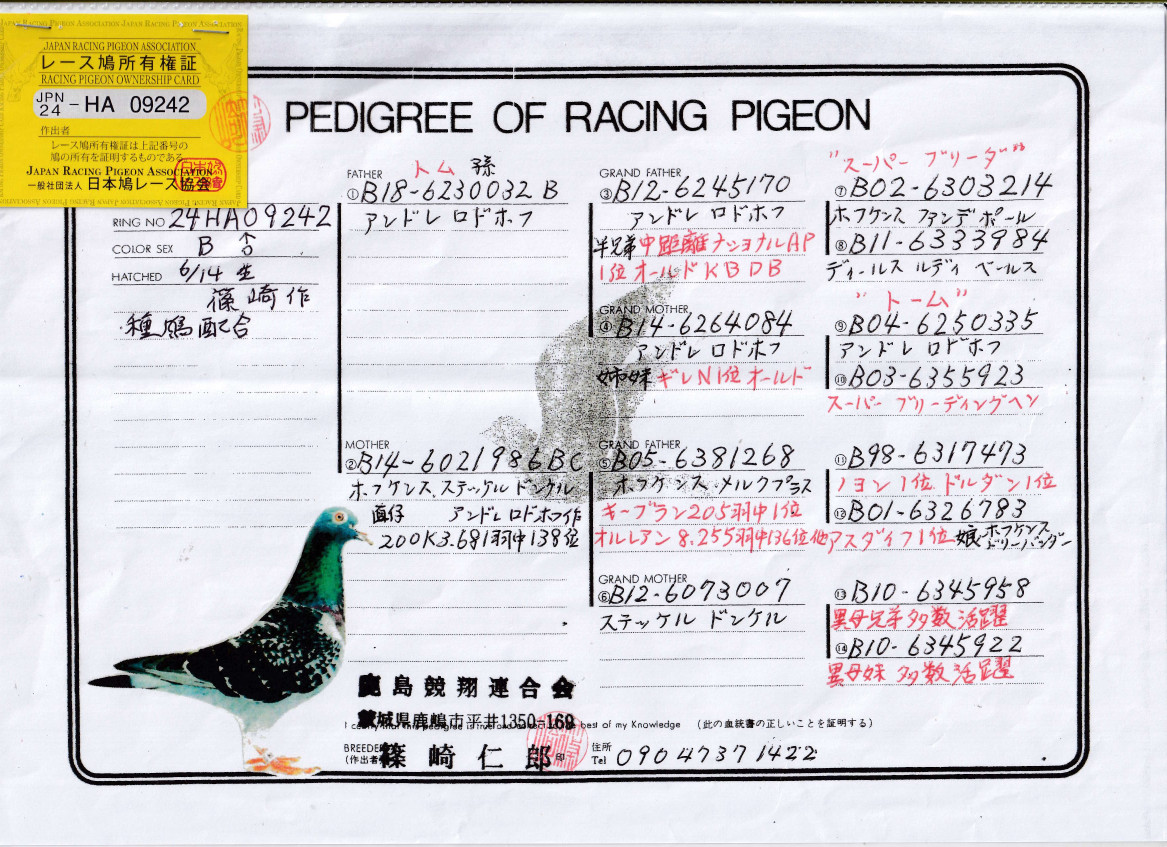 JAPAN RACING PIGEON ASSOCIATION
レース鳩所有権証
RACING PIGEON OWNERSHIP CARD
JPN
24 - HA 09242
作出者
レース鳩所有権証は上記番号の
鳩の所有を証明するものである
JAPAN RACING PIGEON ASSOCIATION
一般社団法人 日本鳩レース協会
PEDIGREE OF RACING PIGEON
RING NO 24HA09242
COLOR SEX B ♂
HATCHED 6/14 生
篠崎作
種鳩配合
FATHER トム 孫
①B18-6230032 B
アンドレ ロドホフ
MOTHER
②B14-6021986BC
ホフケンス.ステッケル ドンケル
直仔 アンドレ ロドホフ作
200K3.681羽中138位
GRAND FATHER
③B12-6245170
アンドレ ロドホフ
半兄弟 中距離ナショナルAP
1位 オールド KBDB
GRAND MOTHER
④B14-6264084
アンドレ ロドホフ
姉妹 ギレN1位 オールド
GRAND FATHER
⑤B05-6381268
ホフケンス・メルクプラス
キーブラン205羽中1位
オルレアン 8.255羽中136位他
GRAND MOTHER
⑥B12-6073007
ステッケル ドンケル
"スーパー ブリーダー"
⑦B02-6303214
ホフケンス ファンデポール
⑧B11-6333984
ディールス ルディ ベールス
"トーム"
⑨B04-6250335
アンドレ ロドホフ
⑩B03-6355923
スーパー ブリーディングヘン
⑪B98-6317473
ノヨン1位 ドルダン1位
⑫B01-6326783
アスダイフ1位 娘 ホフケンス
ドリーバンダー
⑬B10-6345958
異母兄弟多数活躍
⑭B10-6345922
異母妹 多数活躍
鹿島競翔連合会
茨城県鹿嶋市平井1350-169
I certify that this pedigree is true and correct to the best of my Knowledge (此の血統書の正しいことを証明する)
BREEDER
(作出者) 篠崎仁郎 印
住所
Tel 090 4737 1422